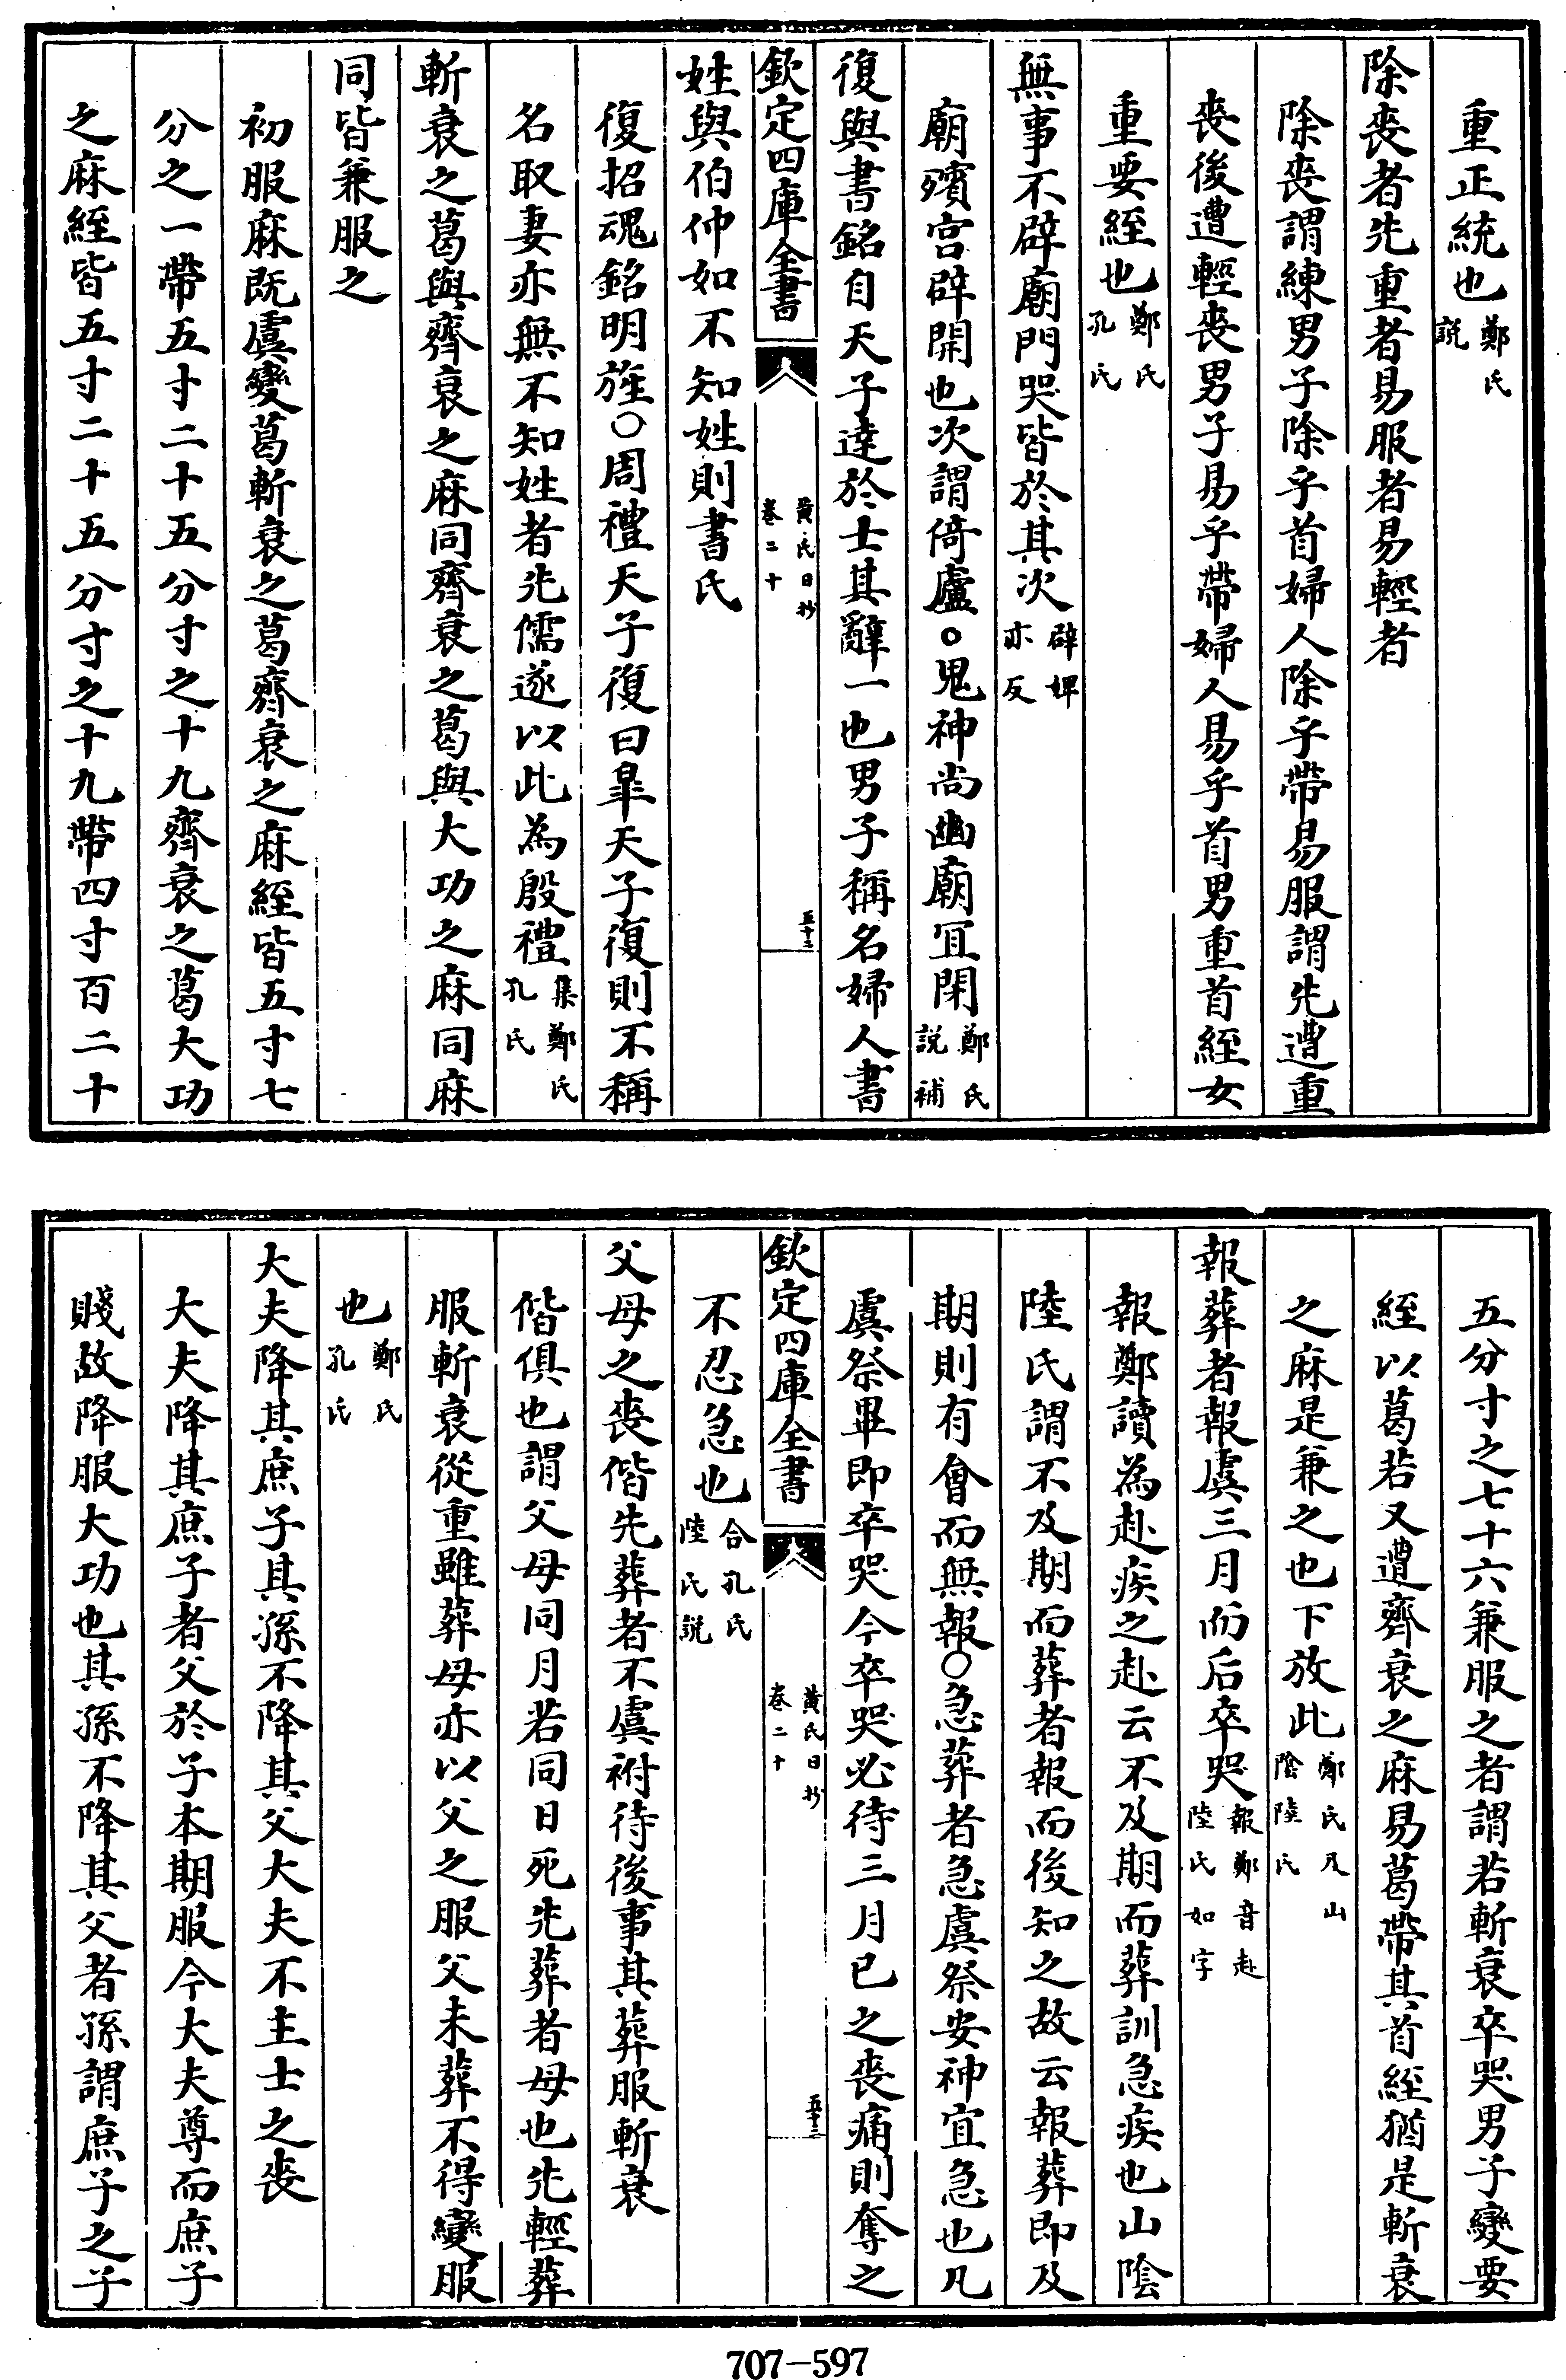 重正統也鄭氏說
除喪者先重者易服者易輕者
除喪謂練男子除乎首婦人除乎帶易服謂先遭重
喪後遭輕喪男子易乎帶婦人易乎首男重首絰女
重要絰也鄭氏孔氏
無事不辟廟門哭皆於其次辟婢亦反
廟殯宮辟開也次謂倚廬○鬼神尚幽廟宜閉鄭氏說補
復與書銘自天子達於士其辭一也男子稱名婦人書
欽定四庫全書
黃氏日抄
卷二十
五十二
姓與伯仲如不知姓則書氏
復招魂銘明旌○周禮天子復曰臯天子復則不稱
名取妻亦無不知姓者先儒遂以此為殷禮集鄭氏孔氏
斬衰之葛與齊衰之麻同齊衰之葛與大功之麻同麻
同皆兼服之
初服麻既虞變葛斬衰之葛齊衰之麻絰皆五寸七
分之一帶五寸二十五分寸之十九齊衰之葛大功
之麻絰皆五寸二十五分寸之十九帶四寸百二十
五分寸之七十六兼服之者謂若斬衰卒哭男子變要
絰以葛若又遭齊衰之麻易葛帶其首絰猶是斬衰
之麻是兼之也下放此鄭氏及山陰陸氏
報葬者報虞三月而后卒哭報鄭音赴陸氏如字
報鄭讀為赴疾之赴云不及期而葬訓急疾也山陰
陸氏謂不及期而葬者報而後知之故云報葬即及
期則有會而無報○急葬者急虞祭安神宜急也凡
虞祭畢即卒哭今卒哭必待三月已之喪痛則奪之
欽定四庫全書
黃氏日抄
卷二十
五十三
不忍急也合孔氏陸氏說
父母之喪偕先葬者不虞祔待後事其葬服斬衰
偕俱也謂父母同月若同日死先葬者母也先輕葬
服斬衰從重雖葬母亦以父之服父未葬不得變服
也鄭氏孔氏
大夫降其庶子其孫不降其父大夫不主士之喪
大夫降其庶子者父於子本期服今大夫尊而庶子
賤故降服大功也其孫不降其父者孫謂庶子之子
707-597